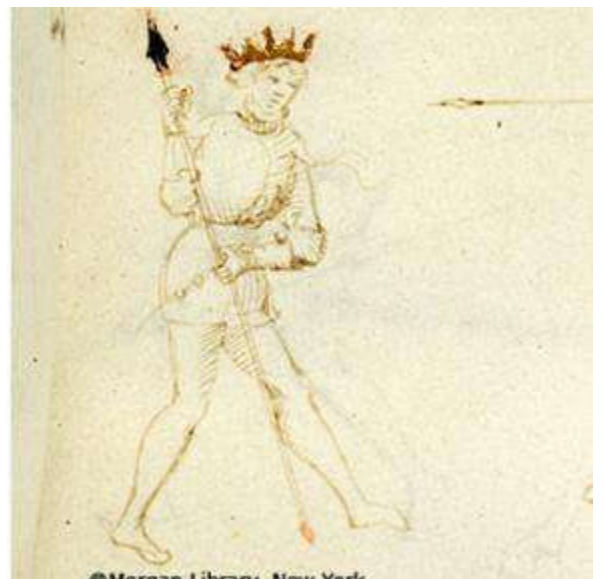 ©Morgan Library, New York